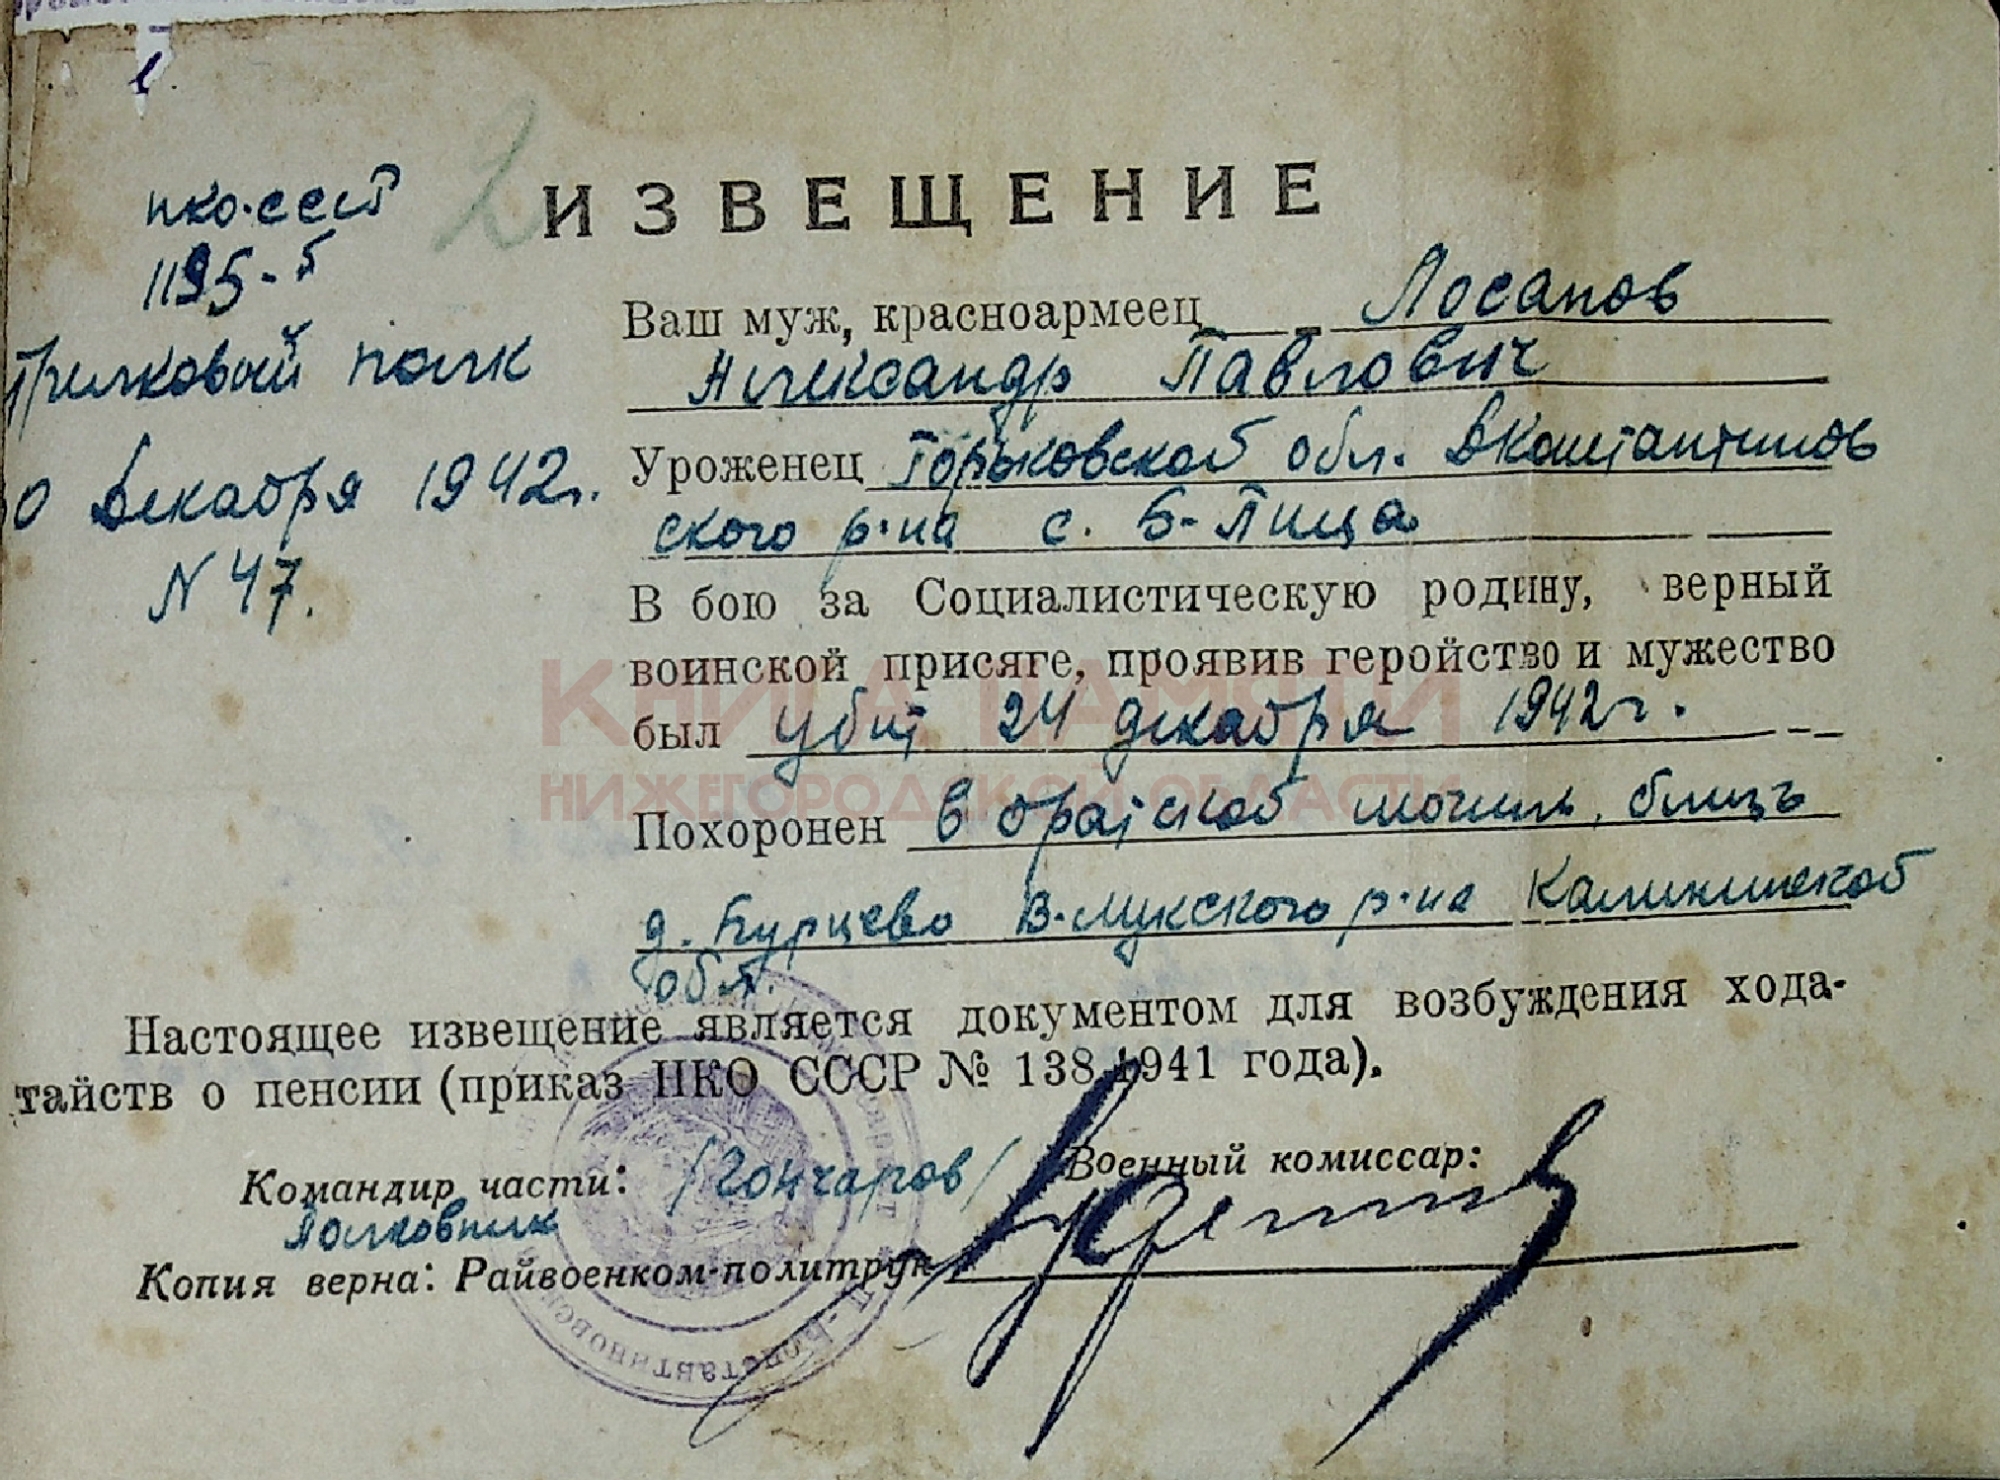 2
ИЗВЕЩЕНИЕ
нко-ссср
1195-й
стрелковый полк
0 Декабря 1942г.
N 47.
Ваш муж, красноармеец Лосапов
Александр Павлович
Уроженец Горьковской обл. ДКонстантинов
ского р-на с. Б-Пица
В бою за Социалистическую родину, верный
воинской присяге, проявив геройство и мужество
был убит 24 декабря 1942г.
Похоронен в братской могиле, близь
д. Бурцево В-лукского р-на Калининской
обл.
Настоящее извещение является документом для возбуждения хода-
тайств о пенсии (приказ НКО СССР № 138,1941 года).
Командир части: /Гончаров/ Военный комиссар:
Полковник
Копия верна: Райвоенком-политрук
КНИГА ПАМЯТИ
НИЖЕГОРОДСКОЙ ОБЛАСТИ